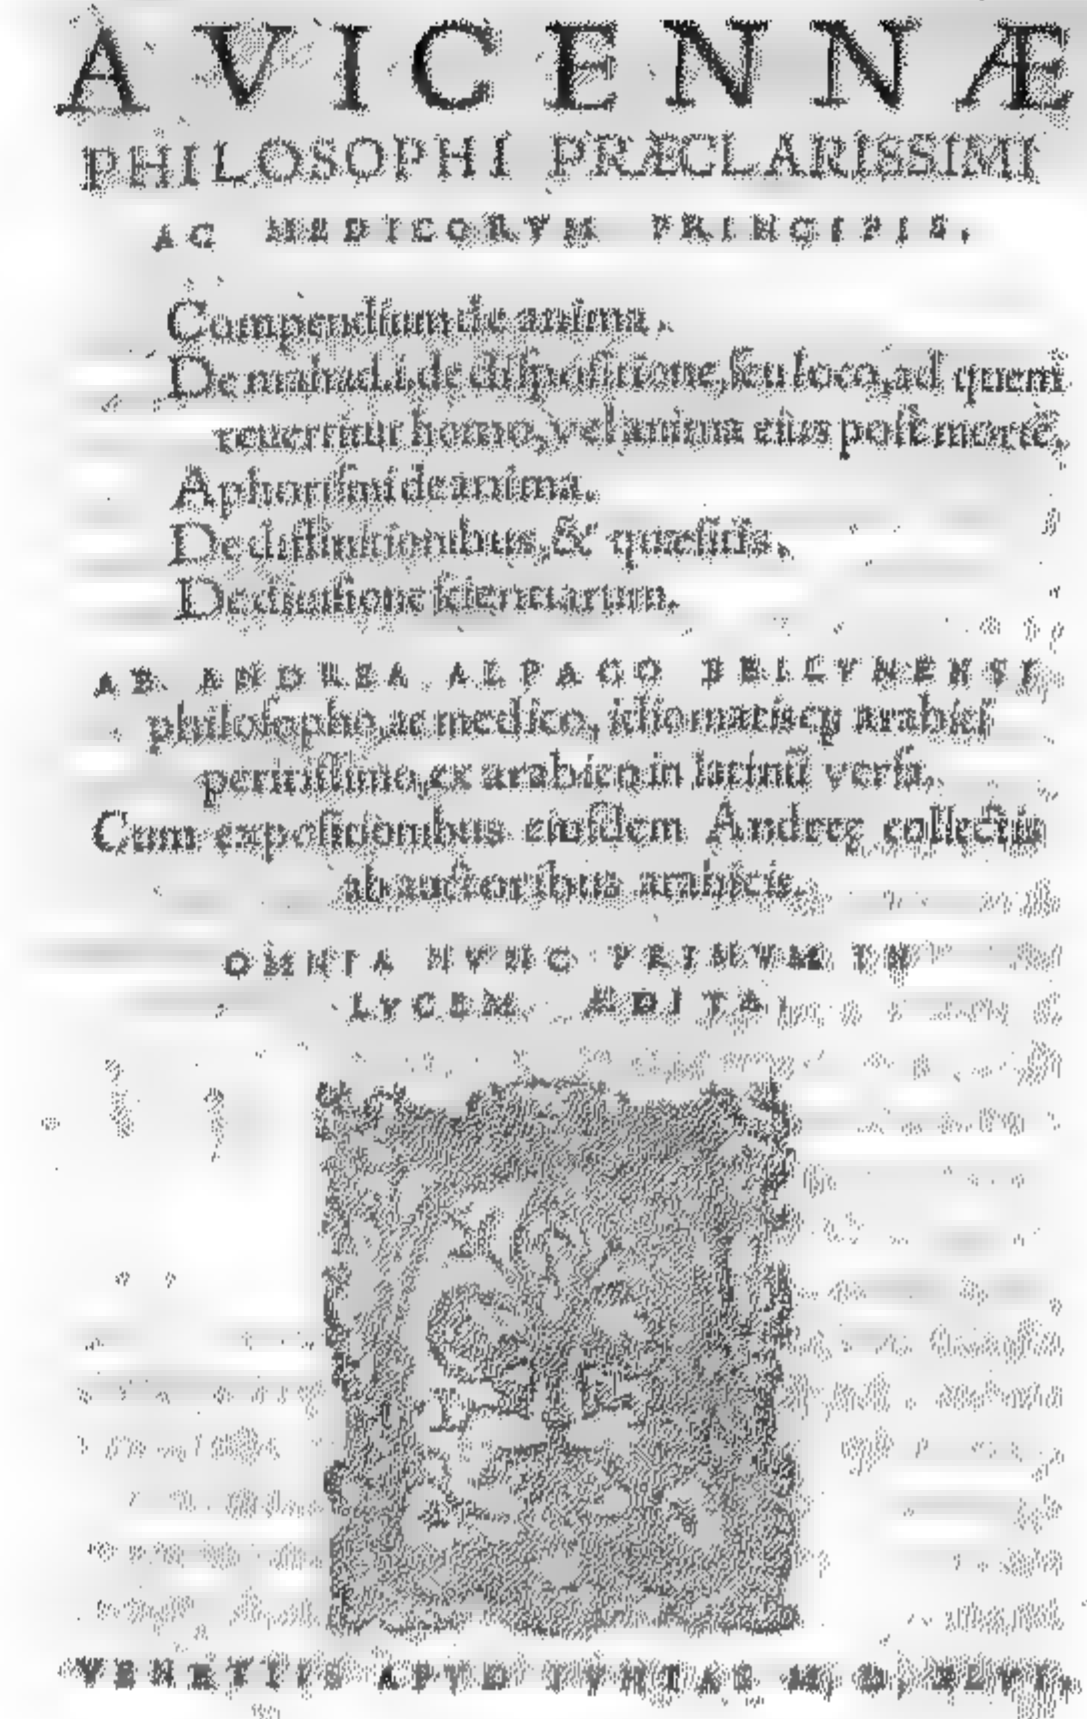 AVICENNÆ
PHILOSOPHI PRÆCLARISSIMI
AC MEDICORVM PRINCIPIS.
Compendium de anima.
De mahad.i.de dispositione, seu loco, ad quem
reuertitur homo, vel anima eius post mortē,
Aphorismi de anima.
De diffinitionibus, & quæsitis.
De diuisione scientiarum.
AB ANDREA ALPAGO BELLVNENSI
philosopho, ac medico, idiomatisq; arabici
peritissimo, ex arabico in latinū versa.
Cum expositionibus eiusdem Andreę collectis
ab auctoribus arabicis.
OMNIA NVNC PRIMVM IN
LVCEM ÆDITA.
L F
VENETIIS APVD IVNTAS M. D. XLVI.